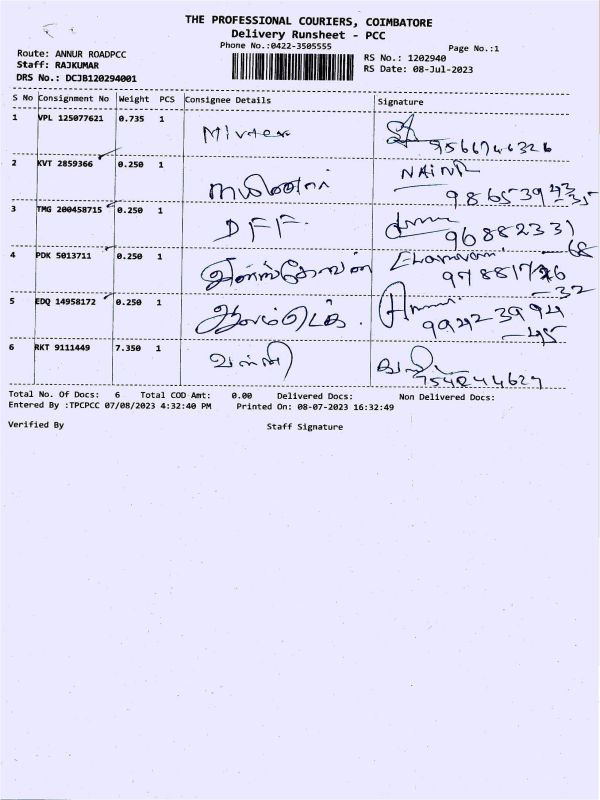 THE PROFESSIONAL COURIERS, COIMBATORE
Delivery Runsheet - PCC
Phone No.:0422-3505555
Page No.:1
Route: ANNUR ROADPCC
Staff: RAJKUMAR
DRS No.: DCJB120294001
RS No.: 1202940
RS Date: 08-Jul-2023
S No Consignment No Weight PCS Consignee Details Signature
1 VPL 125077621 0.735 1
9566746326
2 KVT 2859366 0.250 1
98653943
-35
3 TMG 200458715 0.250 1 DFF.
96882331
-68
4 PDK 5013711 0.250 1
97881776
-32
5 EDQ 14958172 0.250 1
99423994
-45
6 RKT 9111449 7.350 1 வள்ளி
7548244627
Total No. Of Docs: 6 Total COD Amt: 0.00 Delivered Docs: Non Delivered Docs:
Entered By :TPCPCC 07/08/2023 4:32:40 PM Printed On: 08-07-2023 16:32:49
Verified By Staff Signature